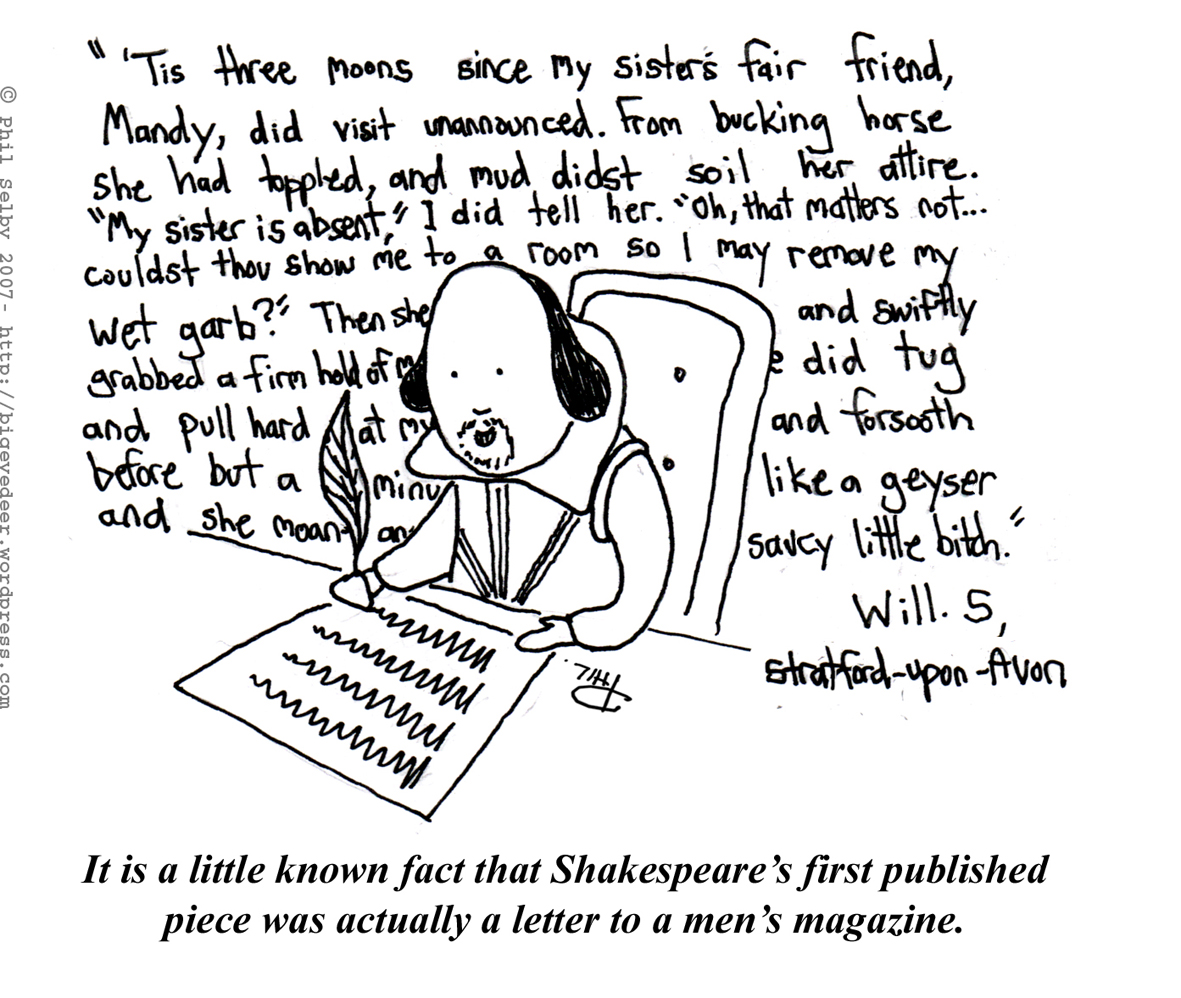 " 'Tis three moons since my sister's fair friend,
Mandy, did visit unannounced. From bucking horse
she had toppled, and mud didst soil her attire.
"My sister is absent," I did tell her. "Oh, that matters not...
couldst thou show me to a room so I may remove my
wet garb?" Then she and swiftly
grabbed a firm hold of did tug
and pull hard at my and forsooth
before but a minu like a geyser
and she moan saucy little bitch."
Will. S,
Stratford-upon-Avon
Phil.
It is a little known fact that Shakespeare's first published
piece was actually a letter to a men's magazine.
© Phil Selby 2007- http://bigeyedeer.wordpress.com